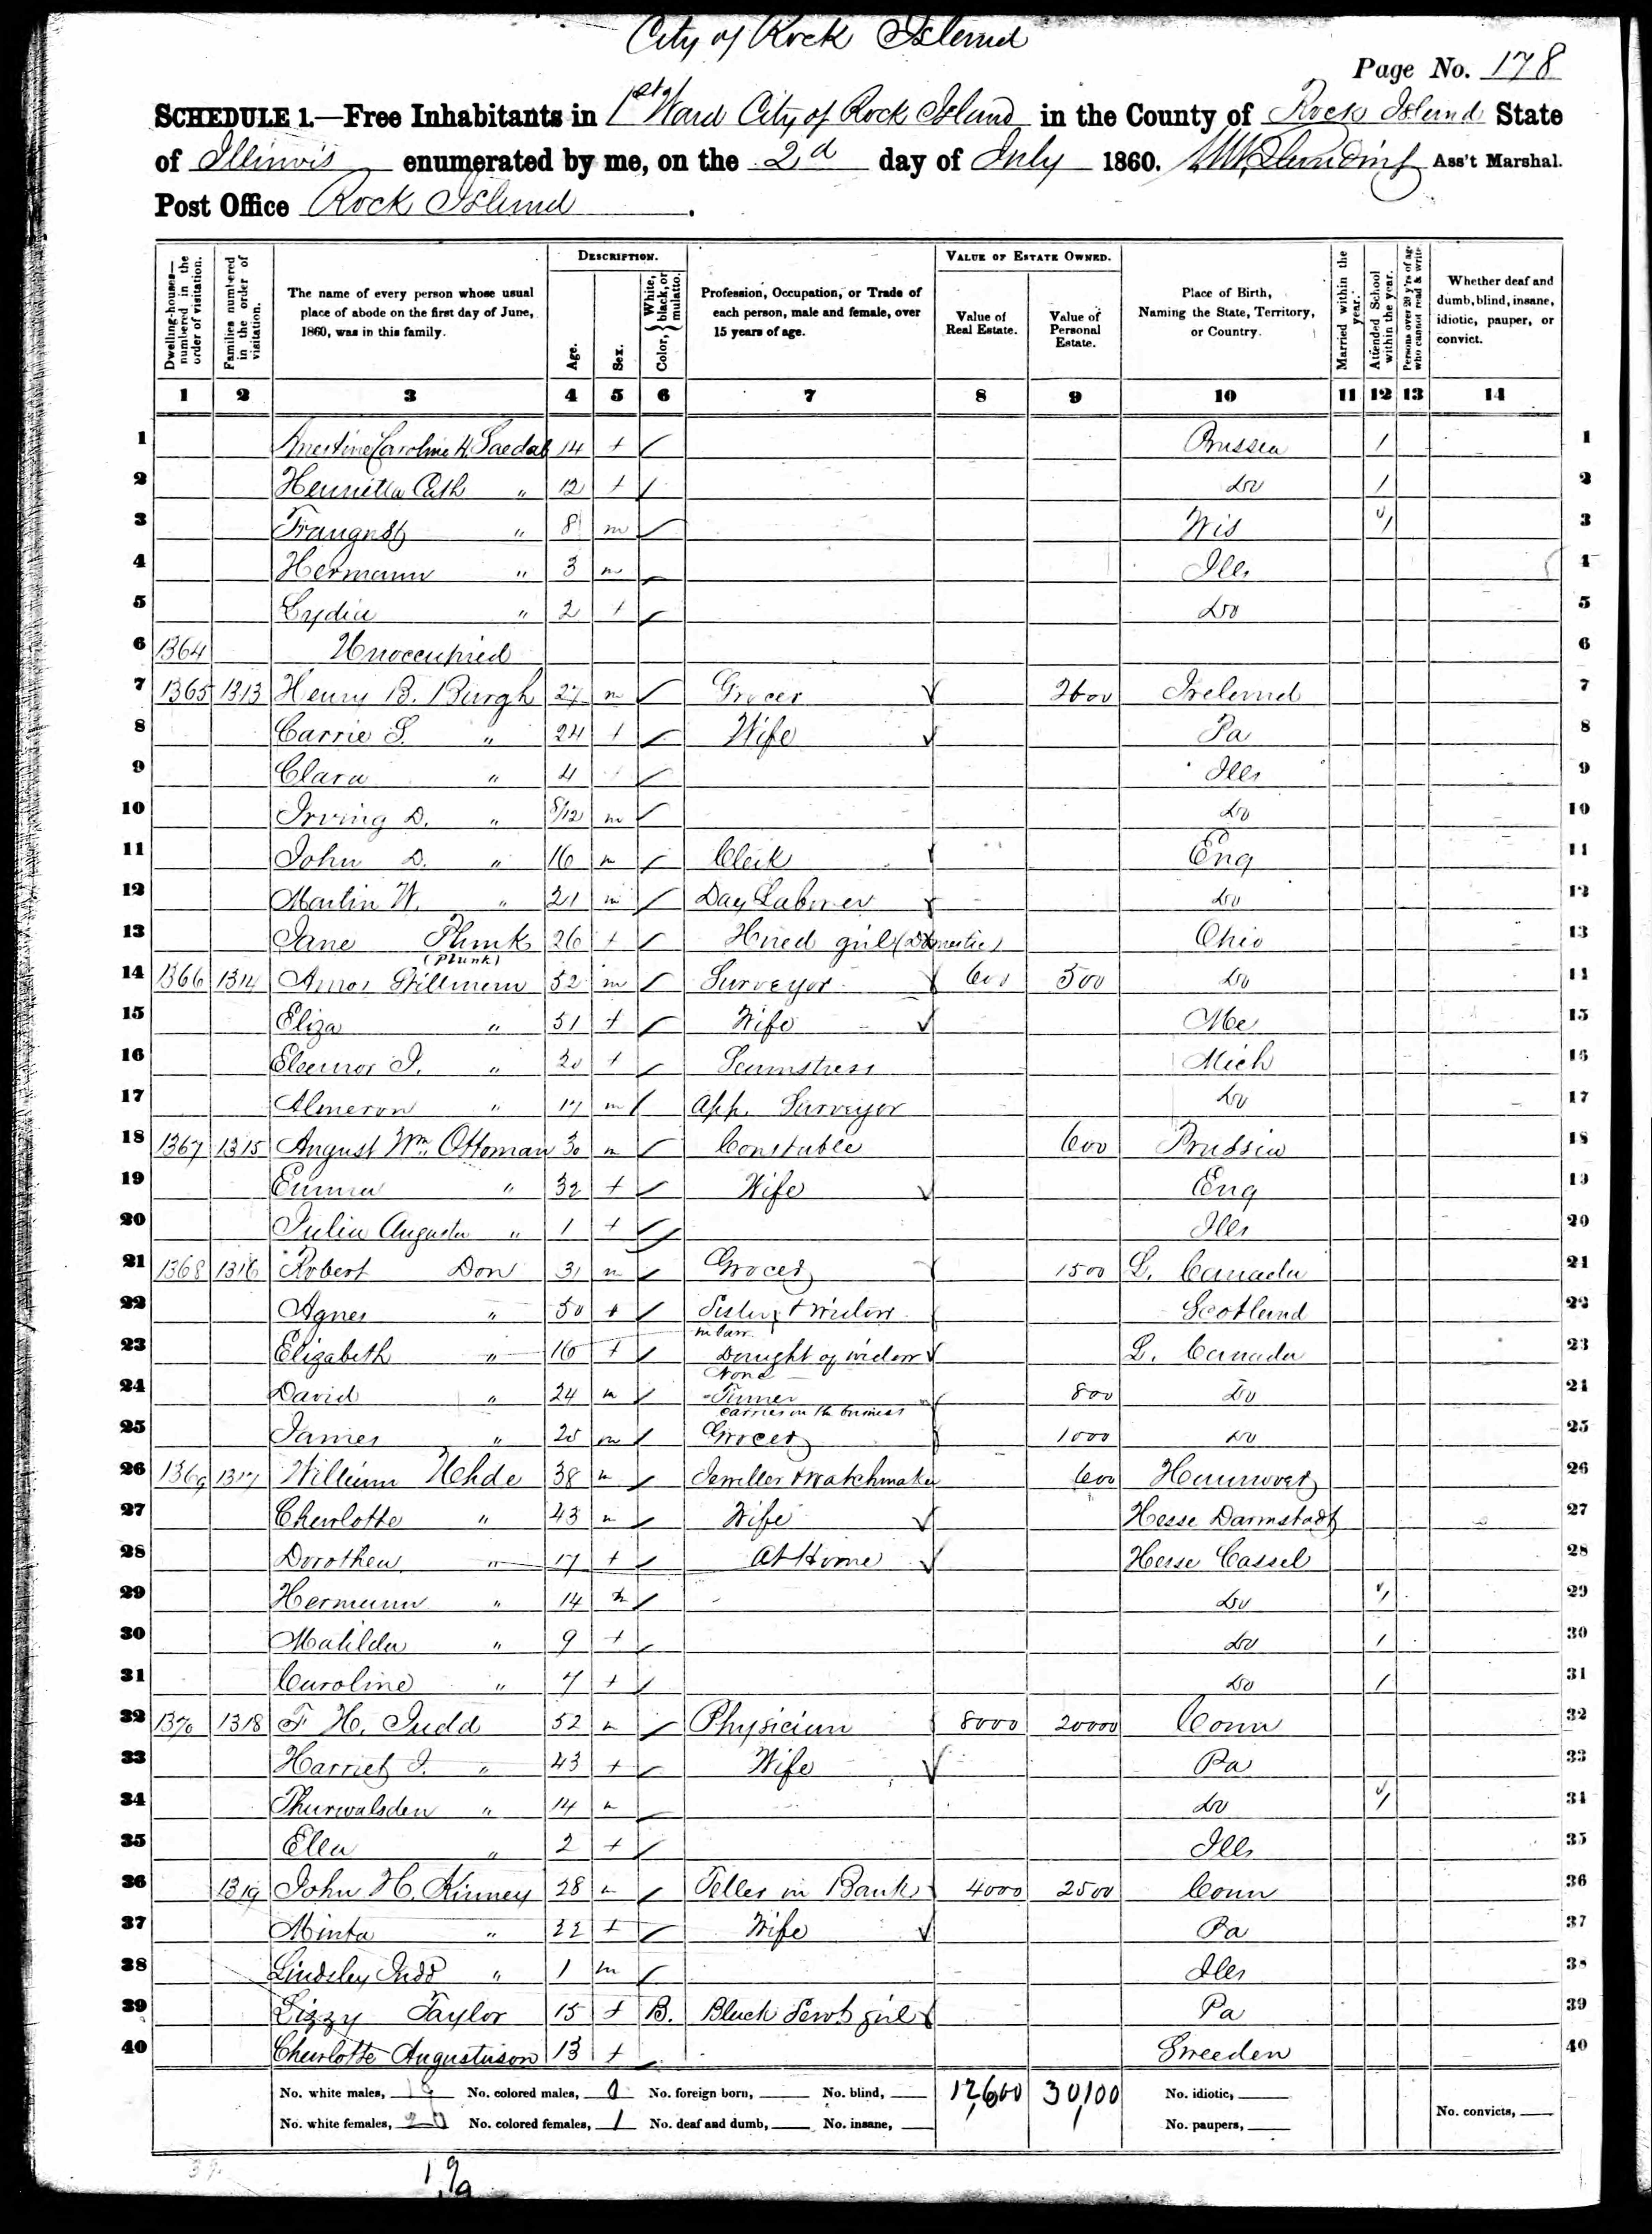 City of Rock Island
Page No. 178
SCHEDULE 1.—Free Inhabitants in 1st Ward City of Rock Island in the County of Rock Island State
of Illinois enumerated by me, on the 2d day of July 1860. Ass't Marshal.
Post Office Rock Island.
DESCRIPTION. VALUE OF ESTATE OWNED.
Dwelling-houses—numbered in the order of visitation. Families numbered in the order of visitation. The name of every person whose usual place of abode on the first day of June, 1860, was in this family. Age. Sex. Color, { White, black, or mulatto. Profession, Occupation, or Trade of each person, male and female, over 15 years of age. Value of Real Estate. Value of Personal Estate. Place of Birth, Naming the State, Territory, or Country. Married within the year. Attended School within the year. Persons over 20 y'rs of age who cannot read & write. Whether deaf and dumb, blind, insane, idiotic, pauper, or convict.
1 2 3 4 5 6 7 8 9 10 11 12 13 14
1 Caroline H. 14 + / Prussia / 1
2 Henrietta Cath " 12 + / Do / 2
3 " 8 m / Wis / 3
4 Hermann " 3 m / Ills 4
5 Lydia " 2 + / Do 5
6 1364 Unoccupied 6
7 1365 1313 Henry B. Burgh 27 m / Grocer 2600 Ireland 7
8 Carrie S. " 24 + / Wife Pa 8
9 Clara " 4 / Ills 9
10 Irving D. " 8/12 m / Do 10
11 John D. " 16 m / Clerk Eng 11
12 Martin W. " 21 m / Day Laborer Do 12
13 Jane Plunk 26 + / Hired girl (Domestic) Ohio 13
(Plunk)
14 1366 1314 Amos Stillman 52 m / Surveyor 600 500 Do 14
15 Eliza " 51 + / Wife Me 15
16 Eleanor J. " 20 + / Seamstress Mich 16
17 Almeron " 17 m / App. Surveyor Do 17
18 1367 1315 August Wm. Ottoman 30 m / Constable 600 Prussia 18
19 Emma " 32 + / Wife Eng 19
20 Julia Augusta " 1 + / Ills 20
21 1368 1316 Robert Don 31 m / Grocer 1500 L. Canada 21
22 Agnes " 50 + / Sister & widow Scotland 22
in law
23 Elizabeth " 16 + / Daught of widow L. Canada 23
None
24 David " 24 m / Tinner 800 Do 24
carries on the business
25 James " 25 m / Grocer 1000 Do 25
26 1369 1317 William Uhde 38 m / Jeweller & watchmaker 600 Hannover 26
27 Charlotte " 43 m / Wife Hesse Darmstadt 27
28 Dorothea " 17 + / At Home Hesse Cassel 28
29 Hermann " 14 m / Do / 29
30 Matilda " 9 + / Do / 30
31 Caroline " 7 + / Do / 31
32 1370 1318 F H. Judd 52 m / Physician 8000 20000 Conn 32
33 Harriet J. " 43 + / Wife Pa 33
34 Thurwalsden " 14 m / Do / 34
35 Ella " 2 + / Ills 35
36 1319 John H. Kinney 28 m / Teller in Bank 4000 2500 Conn 36
37 Minta " 22 + / Wife Pa 37
38 Lindsley Judd " 1 m / Ills 38
39 Lizzy Taylor 15 + B. Black Servt girl Pa 39
40 Charlotte Augustuson 13 + / Sweeden 40
No. white males, 19 No. colored males, 0 No. foreign born, No. blind, 12,600 30,100 No. idiotic,
No. white females, 20 No. colored females, 1 No. deaf and dumb, No. insane, No. paupers, No. convicts,
39